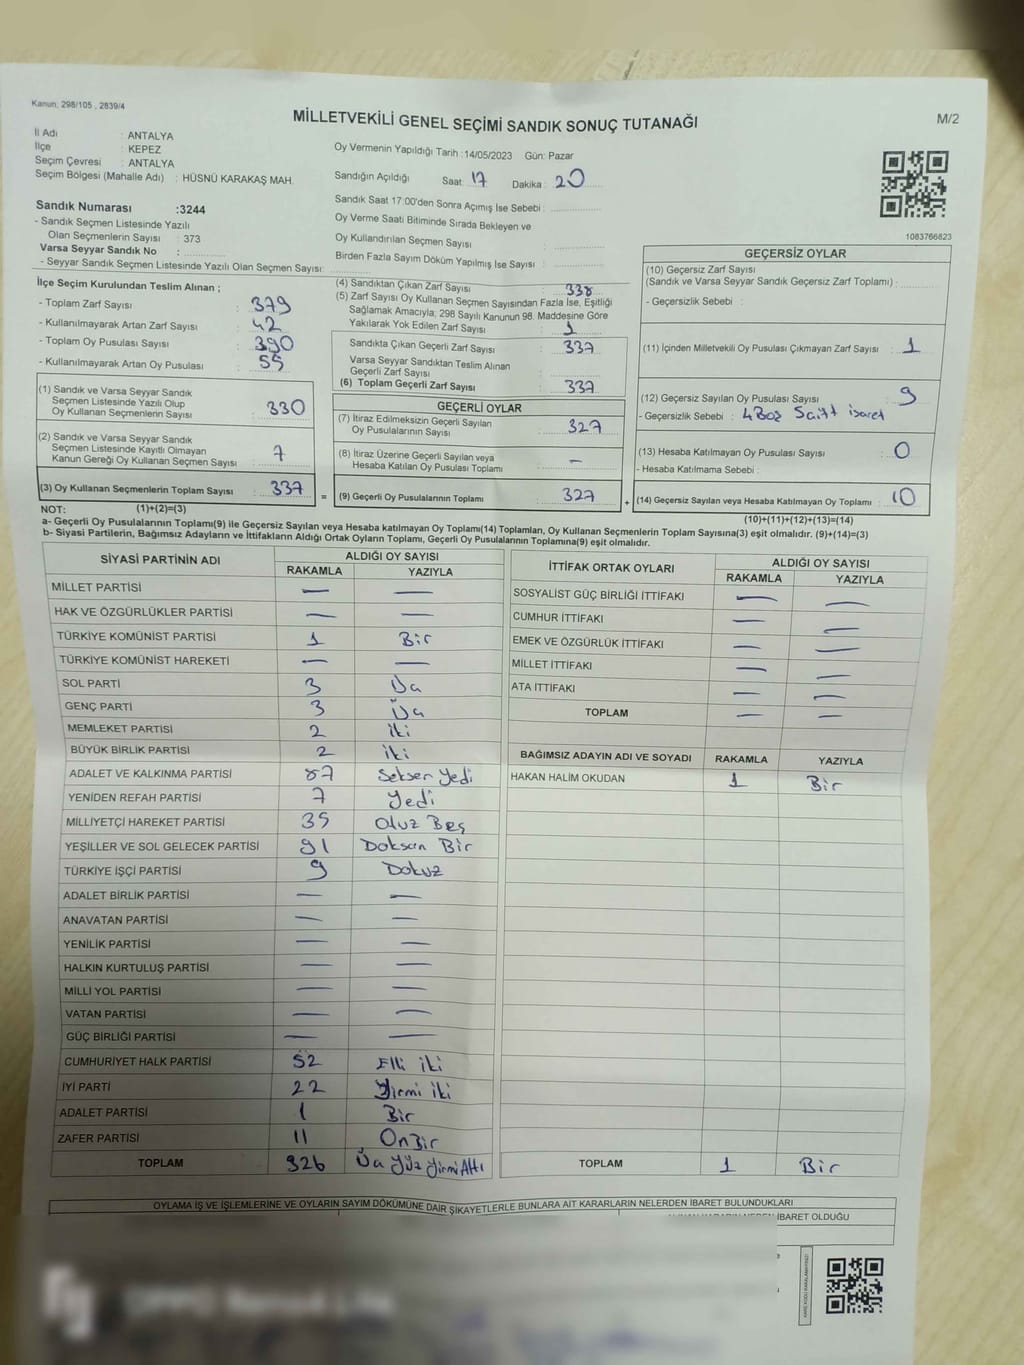 Kanun; 298/105 , 2839/4
MİLLETVEKİLİ GENEL SEÇİMİ SANDIK SONUÇ TUTANAĞI
M/2
İl Adı : ANTALYA
İlçe : KEPEZ
Seçim Çevresi : ANTALYA
Seçim Bölgesi (Mahalle Adı) : HÜSNÜ KARAKAŞ MAH.
Sandık Numarası :3244
- Sandık Seçmen Listesinde Yazılı
Olan Seçmenlerin Sayısı : 373
Varsa Seyyar Sandık No :
- Seyyar Sandık Seçmen Listesinde Yazılı Olan Seçmen Sayısı:
Oy Vermenin Yapıldığı Tarih :14/05/2023 Gün: Pazar
Sandığın Açıldığı Saat: 17 Dakika : 20
Sandık Saat 17:00'den Sonra Açımış İse Sebebi :
Oy Verme Saati Bitiminde Sırada Bekleyen ve
Oy Kullandırılan Seçmen Sayısı :
Birden Fazla Sayım Döküm Yapılmış İse Sayısı :
1083766823
İlçe Seçim Kurulundan Teslim Alınan ;
- Toplam Zarf Sayısı : 379
- Kullanılmayarak Artan Zarf Sayısı : 42
- Toplam Oy Pusulası Sayısı : 390
- Kullanılmayarak Artan Oy Pusulası : 55
(1) Sandık ve Varsa Seyyar Sandık
Seçmen Listesinde Yazılı Olup
Oy Kullanan Seçmenlerin Sayısı : 330
(2) Sandık ve Varsa Seyyar Sandık
Seçmen Listesinde Kayıtlı Olmayan
Kanun Gereği Oy Kullanan Seçmen Sayısı : 7
(3) Oy Kullanan Seçmenlerin Toplam Sayısı : 337
(4) Sandıktan Çıkan Zarf Sayısı : 338
(5) Zarf Sayısı Oy Kullanan Seçmen Sayısından Fazla İse, Eşitliği
Sağlamak Amacıyla; 298 Sayılı Kanunun 98. Maddesine Göre
Yakılarak Yok Edilen Zarf Sayısı : 1
Sandıkta Çıkan Geçerli Zarf Sayısı : 337
Varsa Seyyar Sandıktan Teslim Alınan
Geçerli Zarf Sayısı :
(6) Toplam Geçerli Zarf Sayısı : 337
GEÇERLİ OYLAR
(7) İtiraz Edilmeksizin Geçerli Sayılan
Oy Pusulalarının Sayısı : 327
(8) İtiraz Üzerine Geçerli Sayılan veya
Hesaba Katılan Oy Pusulası Toplamı : —
= (9) Geçerli Oy Pusulalarının Toplamı : 327
GEÇERSİZ OYLAR
(10) Geçersiz Zarf Sayısı
(Sandık ve Varsa Seyyar Sandık Geçersiz Zarf Toplamı) :
- Geçersizlik Sebebi :
(11) İçinden Milletvekili Oy Pusulası Çıkmayan Zarf Sayısı : 1
(12) Geçersiz Sayılan Oy Pusulası Sayısı : 9
- Geçersizlik Sebebi : 4 Boş
(13) Hesaba Katılmayan Oy Pusulası Sayısı : 0
- Hesaba Katılmama Sebebi :
+ (14) Geçersiz Sayılan veya Hesaba Katılmayan Oy Toplamı : 10
NOT: (1)+(2)=(3)
(10)+(11)+(12)+(13)=(14)
a- Geçerli Oy Pusulalarının Toplamı(9) ile Geçersiz Sayılan veya Hesaba katılmayan Oy Toplamı(14) Toplamları, Oy Kullanan Seçmenlerin Toplam Sayısına(3) eşit olmalıdır. (9)+(14)=(3)
b- Siyasi Partilerin, Bağımsız Adayların ve İttifakların Aldığı Ortak Oyların Toplamı, Geçerli Oy Pusulalarının Toplamına(9) eşit olmalıdır.
SİYASİ PARTİNİN ADI
ALDIĞI OY SAYISI
RAKAMLA YAZIYLA
MİLLET PARTİSİ — —
HAK VE ÖZGÜRLÜKLER PARTİSİ — —
TÜRKİYE KOMÜNİST PARTİSİ 1 Bir
TÜRKİYE KOMÜNİST HAREKETİ — —
SOL PARTİ 3 Üç
GENÇ PARTİ 3 Üç
MEMLEKET PARTİSİ 2 iki
BÜYÜK BİRLİK PARTİSİ 2 iki
ADALET VE KALKINMA PARTİSİ 87 Seksen Yedi
YENİDEN REFAH PARTİSİ 7 Yedi
MİLLİYETÇİ HAREKET PARTİSİ 35 Otuz Beş
YEŞİLLER VE SOL GELECEK PARTİSİ 91 Doksan Bir
TÜRKİYE İŞÇİ PARTİSİ 9 Dokuz
ADALET BİRLİK PARTİSİ — —
ANAVATAN PARTİSİ — —
YENİLİK PARTİSİ — —
HALKIN KURTULUŞ PARTİSİ — —
MİLLİ YOL PARTİSİ — —
VATAN PARTİSİ — —
GÜÇ BİRLİĞİ PARTİSİ — —
CUMHURİYET HALK PARTİSİ 52 Elli iki
İYİ PARTİ 22 Yirmi iki
ADALET PARTİSİ 1 Bir
ZAFER PARTİSİ 11 OnBir
TOPLAM 326 Üç Yüz Yirmi Altı
İTTİFAK ORTAK OYLARI
ALDIĞI OY SAYISI
RAKAMLA YAZIYLA
SOSYALİST GÜÇ BİRLİĞİ İTTİFAKI — —
CUMHUR İTTİFAKI — —
EMEK VE ÖZGÜRLÜK İTTİFAKI — —
MİLLET İTTİFAKI — —
ATA İTTİFAKI — —
TOPLAM — —
BAĞIMSIZ ADAYIN ADI VE SOYADI RAKAMLA YAZIYLA
HAKAN HALİM OKUDAN 1 Bir
TOPLAM 1 Bir
OYLAMA İŞ VE İŞLEMLERİNE VE OYLARIN SAYIM DÖKÜMÜNE DAİR ŞİKAYETLERLE BUNLARA AİT KARARLARIN NELERDEN İBARET BULUNDUKLARI
İBARET OLDUĞU